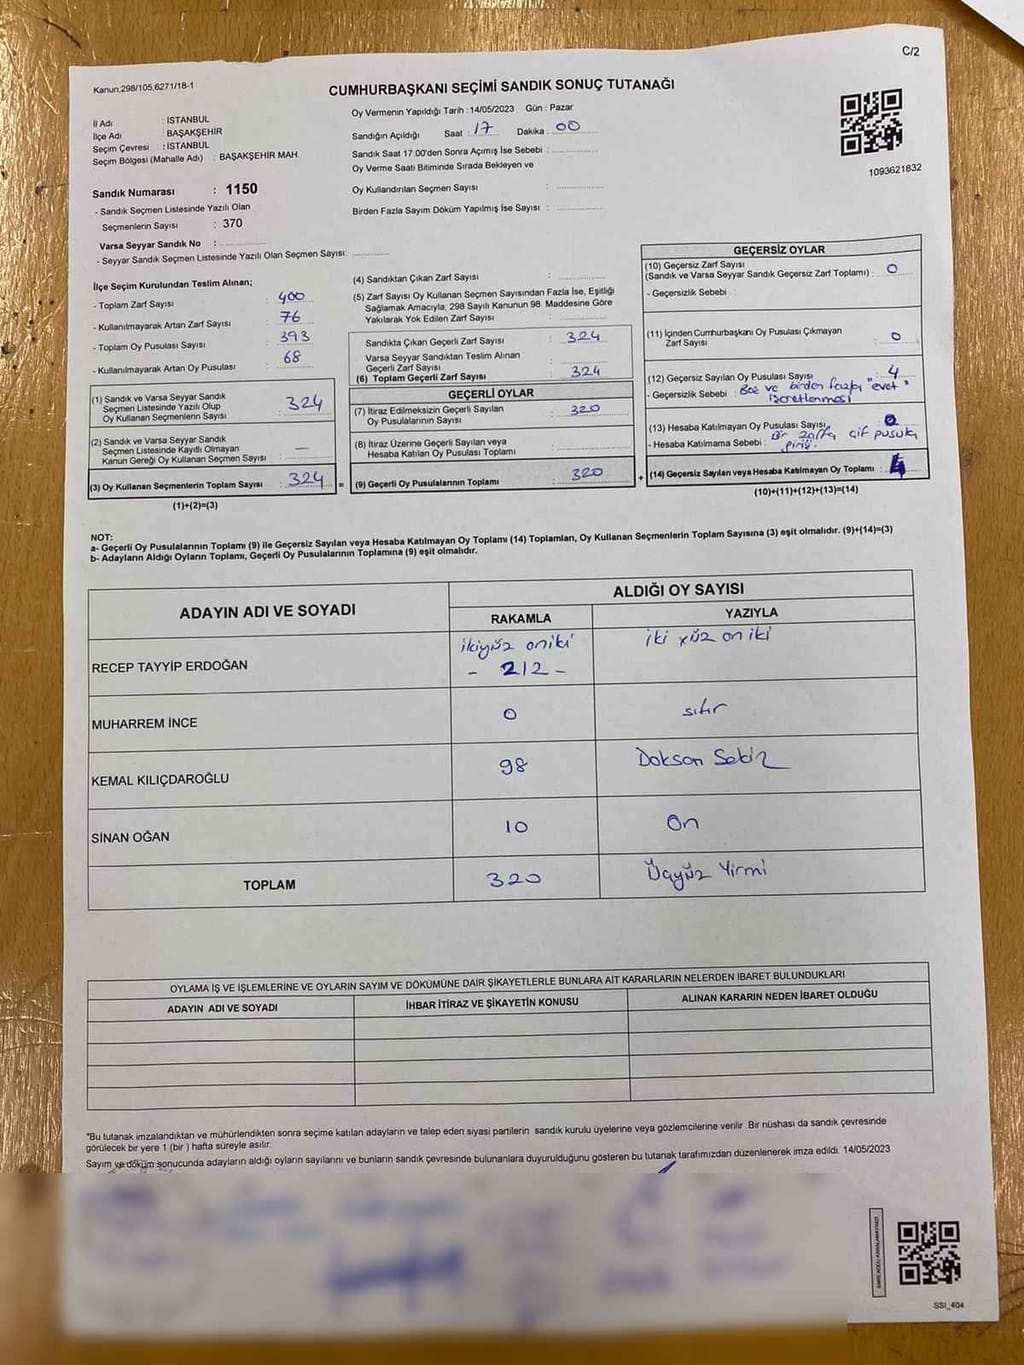 C/2
Kanun,298/105,6271/18-1
CUMHURBAŞKANI SEÇİMİ SANDIK SONUÇ TUTANAĞI
İl Adı : İSTANBUL
İlçe Adı : BAŞAKŞEHİR
Seçim Çevresi : İSTANBUL
Seçim Bölgesi (Mahalle Adı) : BAŞAKŞEHİR MAH.
Sandık Numarası : 1150
- Sandık Seçmen Listesinde Yazılı Olan
Seçmenlerin Sayısı : 370
Varsa Seyyar Sandık No :
- Seyyar Sandık Seçmen Listesinde Yazılı Olan Seçmen Sayısı:
Oy Vermenin Yapıldığı Tarih : 14/05/2023 Gün : Pazar
Sandığın Açıldığı Saat : 17 Dakika : 00
Sandık Saat 17.00'den Sonra Açımış İse Sebebi :
Oy Verme Saati Bitiminde Sırada Bekleyen ve
Oy Kullandırılan Seçmen Sayısı :
Birden Fazla Sayım Döküm Yapılmış İse Sayısı :
1093621832
İlçe Seçim Kurulundan Teslim Alınan;
- Toplam Zarf Sayısı : 400
- Kullanılmayarak Artan Zarf Sayısı : 76
- Toplam Oy Pusulası Sayısı : 393
- Kullanılmayarak Artan Oy Pusulası : 68
(1) Sandık ve Varsa Seyyar Sandık
Seçmen Listesinde Yazılı Olup
Oy Kullanan Seçmenlerin Sayısı : 324
(2) Sandık ve Varsa Seyyar Sandık
Seçmen Listesinde Kayıtlı Olmayan
Kanun Gereği Oy Kullanan Seçmen Sayısı : —
(3) Oy Kullanan Seçmenlerin Toplam Sayısı : 324
(1)+(2)=(3)
(4) Sandıktan Çıkan Zarf Sayısı :
(5) Zarf Sayısı Oy Kullanan Seçmen Sayısından Fazla İse, Eşitliği
Sağlamak Amacıyla; 298 Sayılı Kanunun 98. Maddesine Göre
Yakılarak Yok Edilen Zarf Sayısı :
Sandıkta Çıkan Geçerli Zarf Sayısı : 324
Varsa Seyyar Sandıktan Teslim Alınan
Geçerli Zarf Sayısı :
(6) Toplam Geçerli Zarf Sayısı 324
GEÇERLİ OYLAR
(7) İtiraz Edilmeksizin Geçerli Sayılan
Oy Pusulalarının Sayısı : 320
(8) İtiraz Üzerine Geçerli Sayılan veya
Hesaba Katılan Oy Pusulası Toplamı :
(9) Geçerli Oy Pusulalarının Toplamı : 320
=
+
GEÇERSİZ OYLAR
(10) Geçersiz Zarf Sayısı
(Sandık ve Varsa Seyyar Sandık Geçersiz Zarf Toplamı) : 0
- Geçersizlik Sebebi :
(11) İçinden Cumhurbaşkanı Oy Pusulası Çıkmayan
Zarf Sayısı : 0
(12) Geçersiz Sayılan Oy Pusulası Sayısı : 4
- Geçersizlik Sebebi : Boş ve birden fazla "evet"
işaretlenmesi
(13) Hesaba Katılmayan Oy Pusulası Sayısı : 0
- Hesaba Katılmama Sebebi : Bir zarfta çif pusula
(14) Geçersiz Sayılan veya Hesaba Katılmayan Oy Toplamı : 4
(10)+(11)+(12)+(13)=(14)
NOT:
a- Geçerli Oy Pusulalarının Toplamı (9) ile Geçersiz Sayılan veya Hesaba Katılmayan Oy Toplamı (14) Toplamları, Oy Kullanan Seçmenlerin Toplam Sayısına (3) eşit olmalıdır. (9)+(14)=(3)
b- Adayların Aldığı Oyların Toplamı, Geçerli Oy Pusulalarının Toplamına (9) eşit olmalıdır.
ADAYIN ADI VE SOYADI ALDIĞI OY SAYISI
RAKAMLA YAZIYLA
ikiyüz oniki iki yüz on iki
RECEP TAYYİP ERDOĞAN - 212 -
MUHARREM İNCE 0 sıfır
KEMAL KILIÇDAROĞLU 98 Doksan Sekiz
SİNAN OĞAN 10 On
TOPLAM 320 Üçyüz Yirmi
OYLAMA İŞ VE İŞLEMLERİNE VE OYLARIN SAYIM VE DÖKÜMÜNE DAİR ŞİKAYETLERLE BUNLARA AİT KARARLARIN NELERDEN İBARET BULUNDUKLARI
ADAYIN ADI VE SOYADI İHBAR İTİRAZ VE ŞİKAYETİN KONUSU ALINAN KARARIN NEDEN İBARET OLDUĞU
*Bu tutanak imzalandıktan ve mühürlendikten sonra seçime katılan adayların ve talep eden siyasi partilerin sandık kurulu üyelerine veya gözlemcilerine verilir. Bir nüshası da sandık çevresinde
görülecek bir yere 1 (bir ) hafta süreyle asılır.
Sayım ve döküm sonucunda adayların aldığı oyların sayılarını ve bunların sandık çevresinde bulunanlara duyurulduğunu gösteren bu tutanak tarafımızdan düzenlenerek imza edildi. 14/05/2023
SSI_404